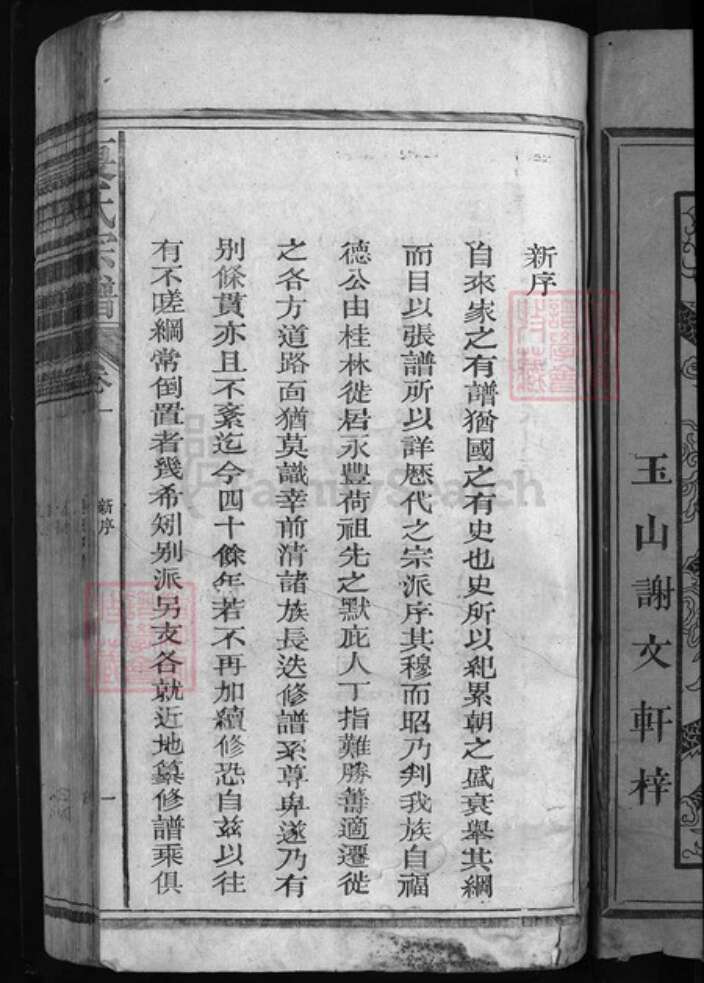 玉山謝文軒梓
新序
自來家之有譜猶國之有史也史所以紀累朝之盛衰舉其綱
而目以張譜所以詳歷代之宗派序其穆而昭乃判我族自福
德公由桂林徙居永豐荷祖先之默庇人丁指難勝籌適遷徙
之各方道路面猶莫識幸前清諸族長迭修譜系尊卑遂乃有
别條貫亦且不紊迄今四十餘年若不再加續修恐自茲以往
有不嗟綱常倒置者幾希矧别派另支各就近地纂修譜乘俱
氏宗譜
卷一
新序
一
FamilySearch